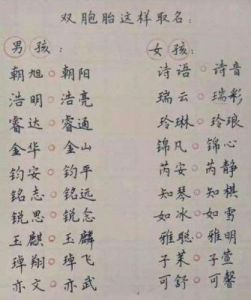 双胞胎这样取名：
男孩： 女孩：
朝旭 朝阳 诗语 诗音
浩明 浩亮 瑞云 瑞彩
睿达 睿通 玲琳 玲琅
金华 金山 锦凡 锦心
钧安 钧平 芮安 芮静
铭志 铭远 知琴 知棋
锐思 锐念 如冰 如雪
玉麒 玉麟 雅聪 雅明
璋翔 璋飞 子茉 子萱
亦文 亦武 可舒 可馨